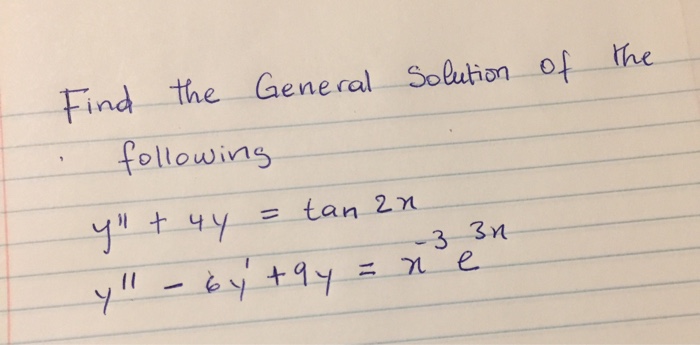 Find the General Solution of the
following
y'' + 4y = tan 2x
y'' - 6y' + 9y = x^-3 e^3x